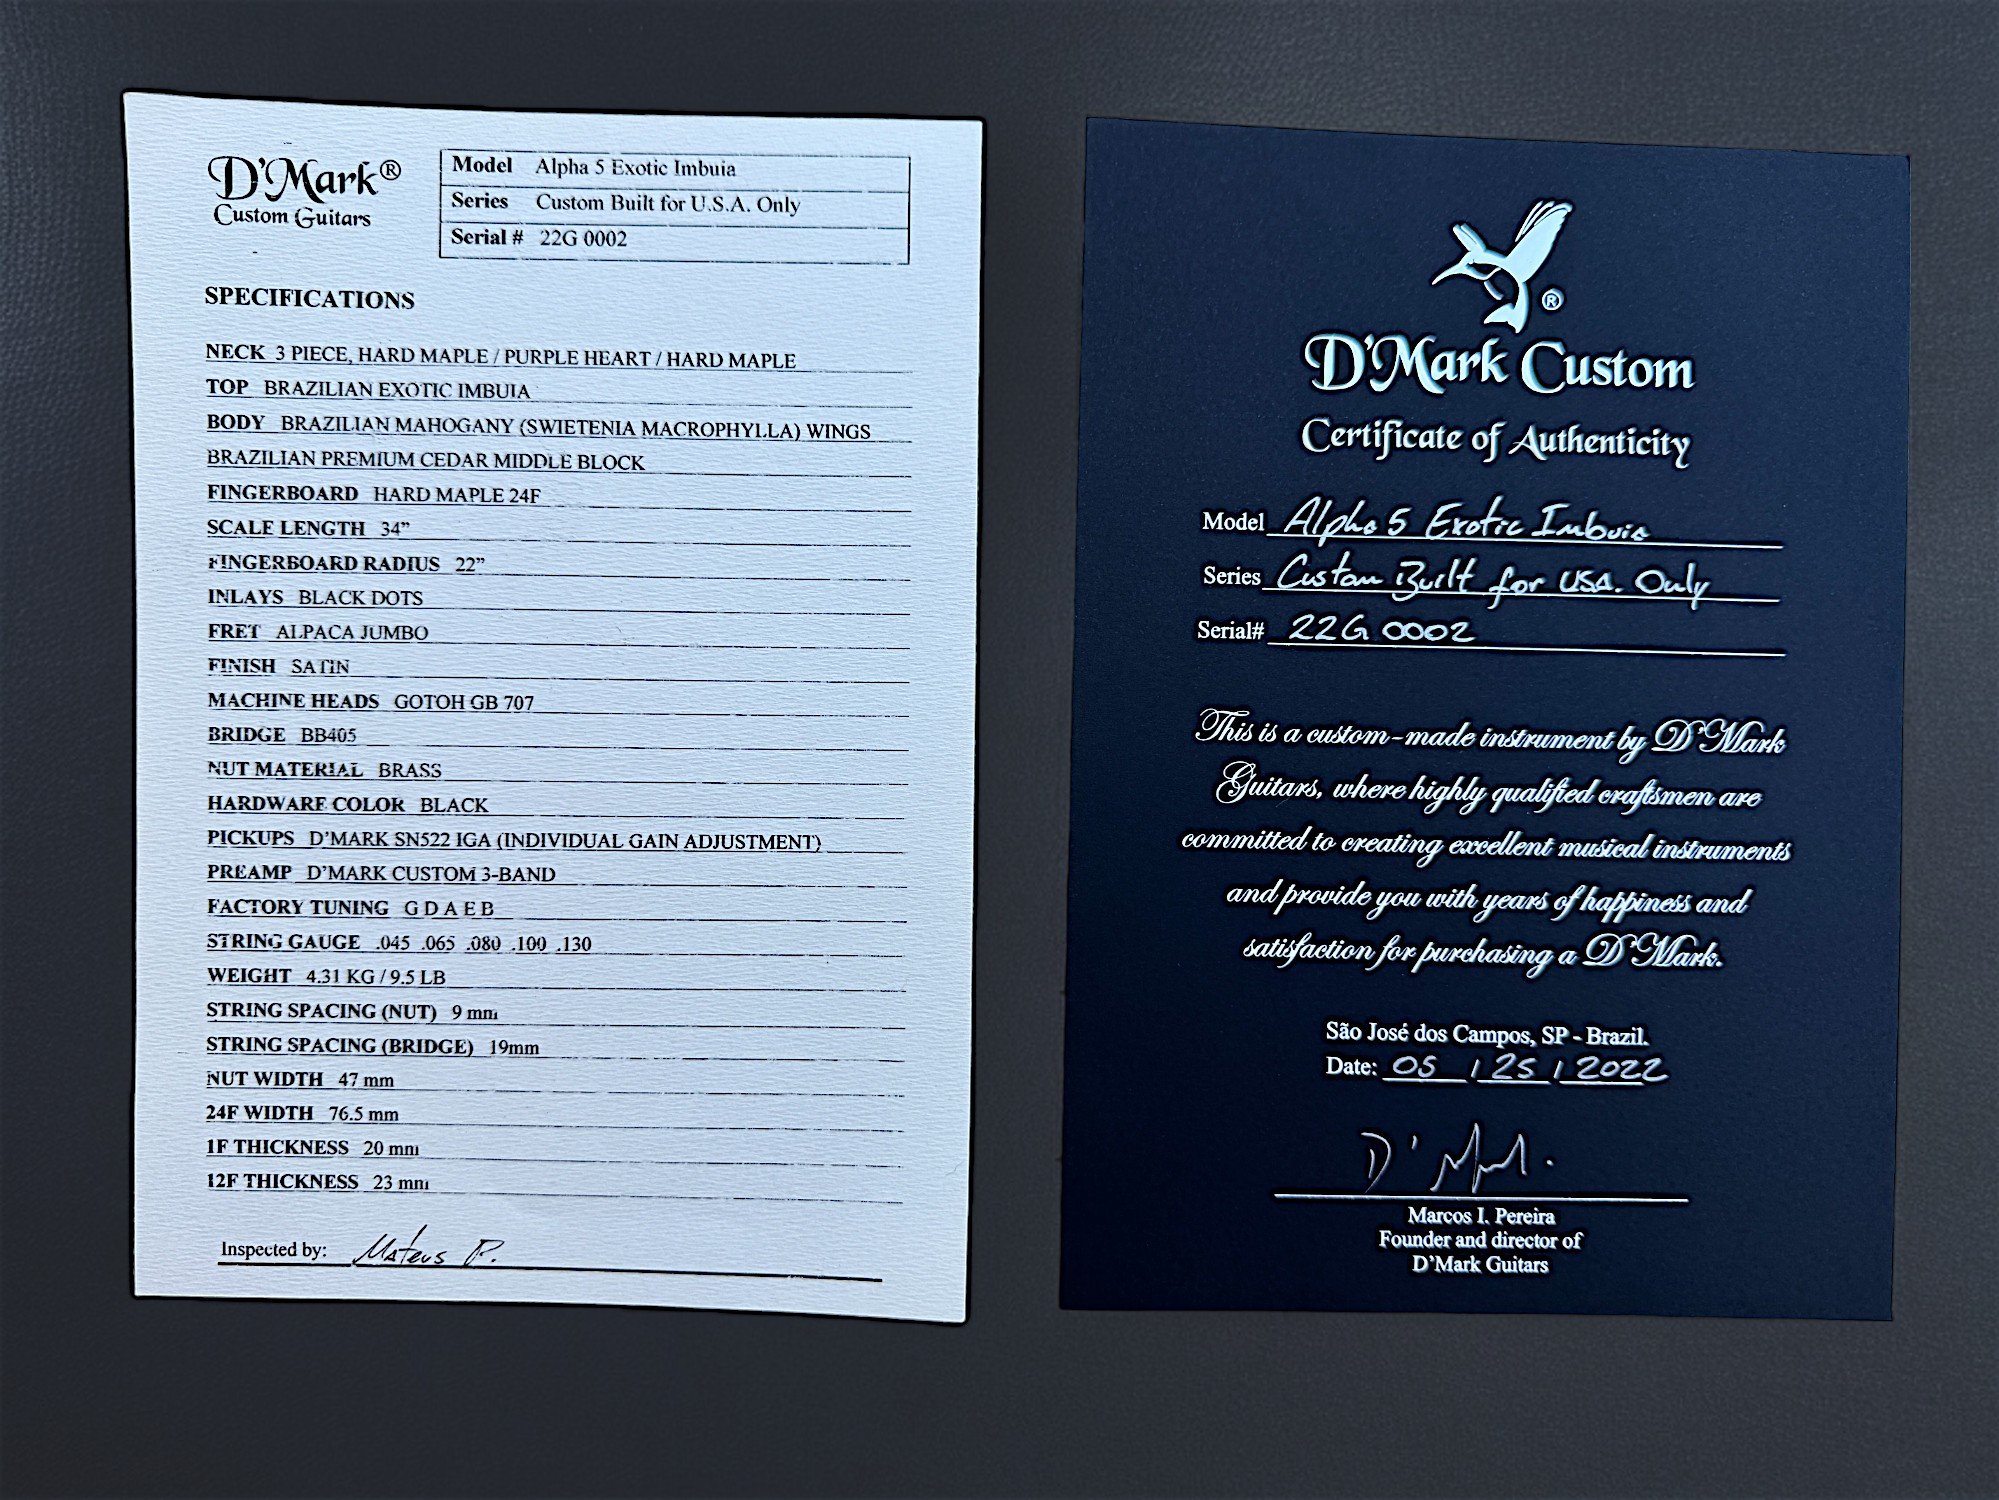 D'Mark®
Custom Guitars
Model Alpha 5 Exotic Imbuia
Series Custom Built for U.S.A. Only
Serial # 22G 0002
SPECIFICATIONS
NECK 3 PIECE, HARD MAPLE / PURPLE HEART / HARD MAPLE
TOP BRAZILIAN EXOTIC IMBUIA
BODY BRAZILIAN MAHOGANY (SWIETENIA MACROPHYLLA) WINGS
BRAZILIAN PREMIUM CEDAR MIDDLE BLOCK
FINGERBOARD HARD MAPLE 24F
SCALE LENGTH 34”
FINGERBOARD RADIUS 22”
INLAYS BLACK DOTS
FRET ALPACA JUMBO
FINISH SATIN
MACHINE HEADS GOTOH GB 707
BRIDGE BB405
NUT MATERIAL BRASS
HARDWARE COLOR BLACK
PICKUPS D’MARK SN522 IGA (INDIVIDUAL GAIN ADJUSTMENT)
PREAMP D’MARK CUSTOM 3-BAND
FACTORY TUNING G D A E B
STRING GAUGE .045 .065 .080 .100 .130
WEIGHT 4.31 KG / 9.5 LB
STRING SPACING (NUT) 9 mm
STRING SPACING (BRIDGE) 19mm
NUT WIDTH 47 mm
24F WIDTH 76.5 mm
1F THICKNESS 20 mm
12F THICKNESS 23 mm
Inspected by: Mateus P.
®
D'Mark Custom
Certificate of Authenticity
Model Alpha 5 Exotic Imbuia
Series Custom Built for USA. Only
Serial# 22G 0002
This is a custom-made instrument by D'Mark
Guitars, where highly qualified craftsmen are
committed to creating excellent musical instruments
and provide you with years of happiness and
satisfaction for purchasing a D'Mark.
São José dos Campos, SP - Brazil.
Date: 05 / 25 / 2022
D'Mark.
Marcos I. Pereira
Founder and director of
D’Mark Guitars